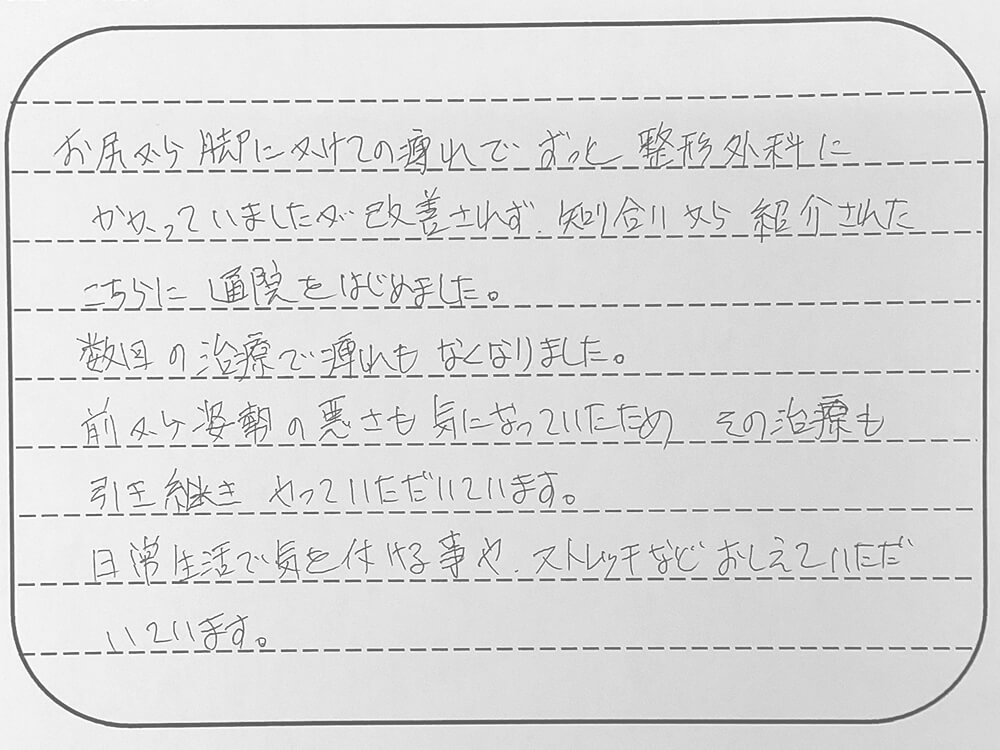 お尻から脚にかけての痺れで ずっと 整形外科に
かかっていましたが改善されず、知り合いから 紹介された
こちらに 通院をはじめました。
数回の治療で痺れも なくなりました。
前から姿勢の悪さも気になっていたため その治療も
引き継き やっていただいています。
日常生活で気を付ける事や、ストレッチなど おしえていただ
いています。